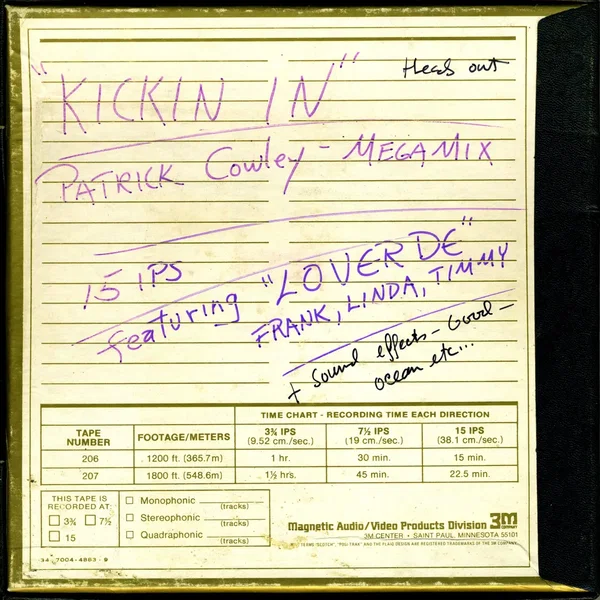 "KICKIN IN"
Heads out
PATRICK Cowley - MEGAMIX
15 IPS
featuring "LOVERDE"
FRANK, LINDA, TIMMY
+ Sound effects - Good -
ocean etc...
TIME CHART - RECORDING TIME EACH DIRECTION
TAPE NUMBER FOOTAGE/METERS 3¾ IPS (9.52 cm./sec.) 7½ IPS (19 cm./sec.) 15 IPS (38.1 cm./sec.)
206 1200 ft. (365.7m) 1 hr. 30 min. 15 min.
207 1800 ft. (548.6m) 1½ hrs. 45 min. 22.5 min.
THIS TAPE IS
RECORDED AT:
3¾ 7½
15
Monophonic (tracks)
Stereophonic (tracks)
Quadraphonic (tracks)
Magnetic Audio/Video Products Division 3M COMPANY
3M CENTER • SAINT PAUL, MINNESOTA 55101
TERMS "SCOTCH", "POLYTRAK" AND THE PLAID DESIGN ARE REGISTERED TRADEMARKS OF THE 3M COMPANY
34-7004-4883-9